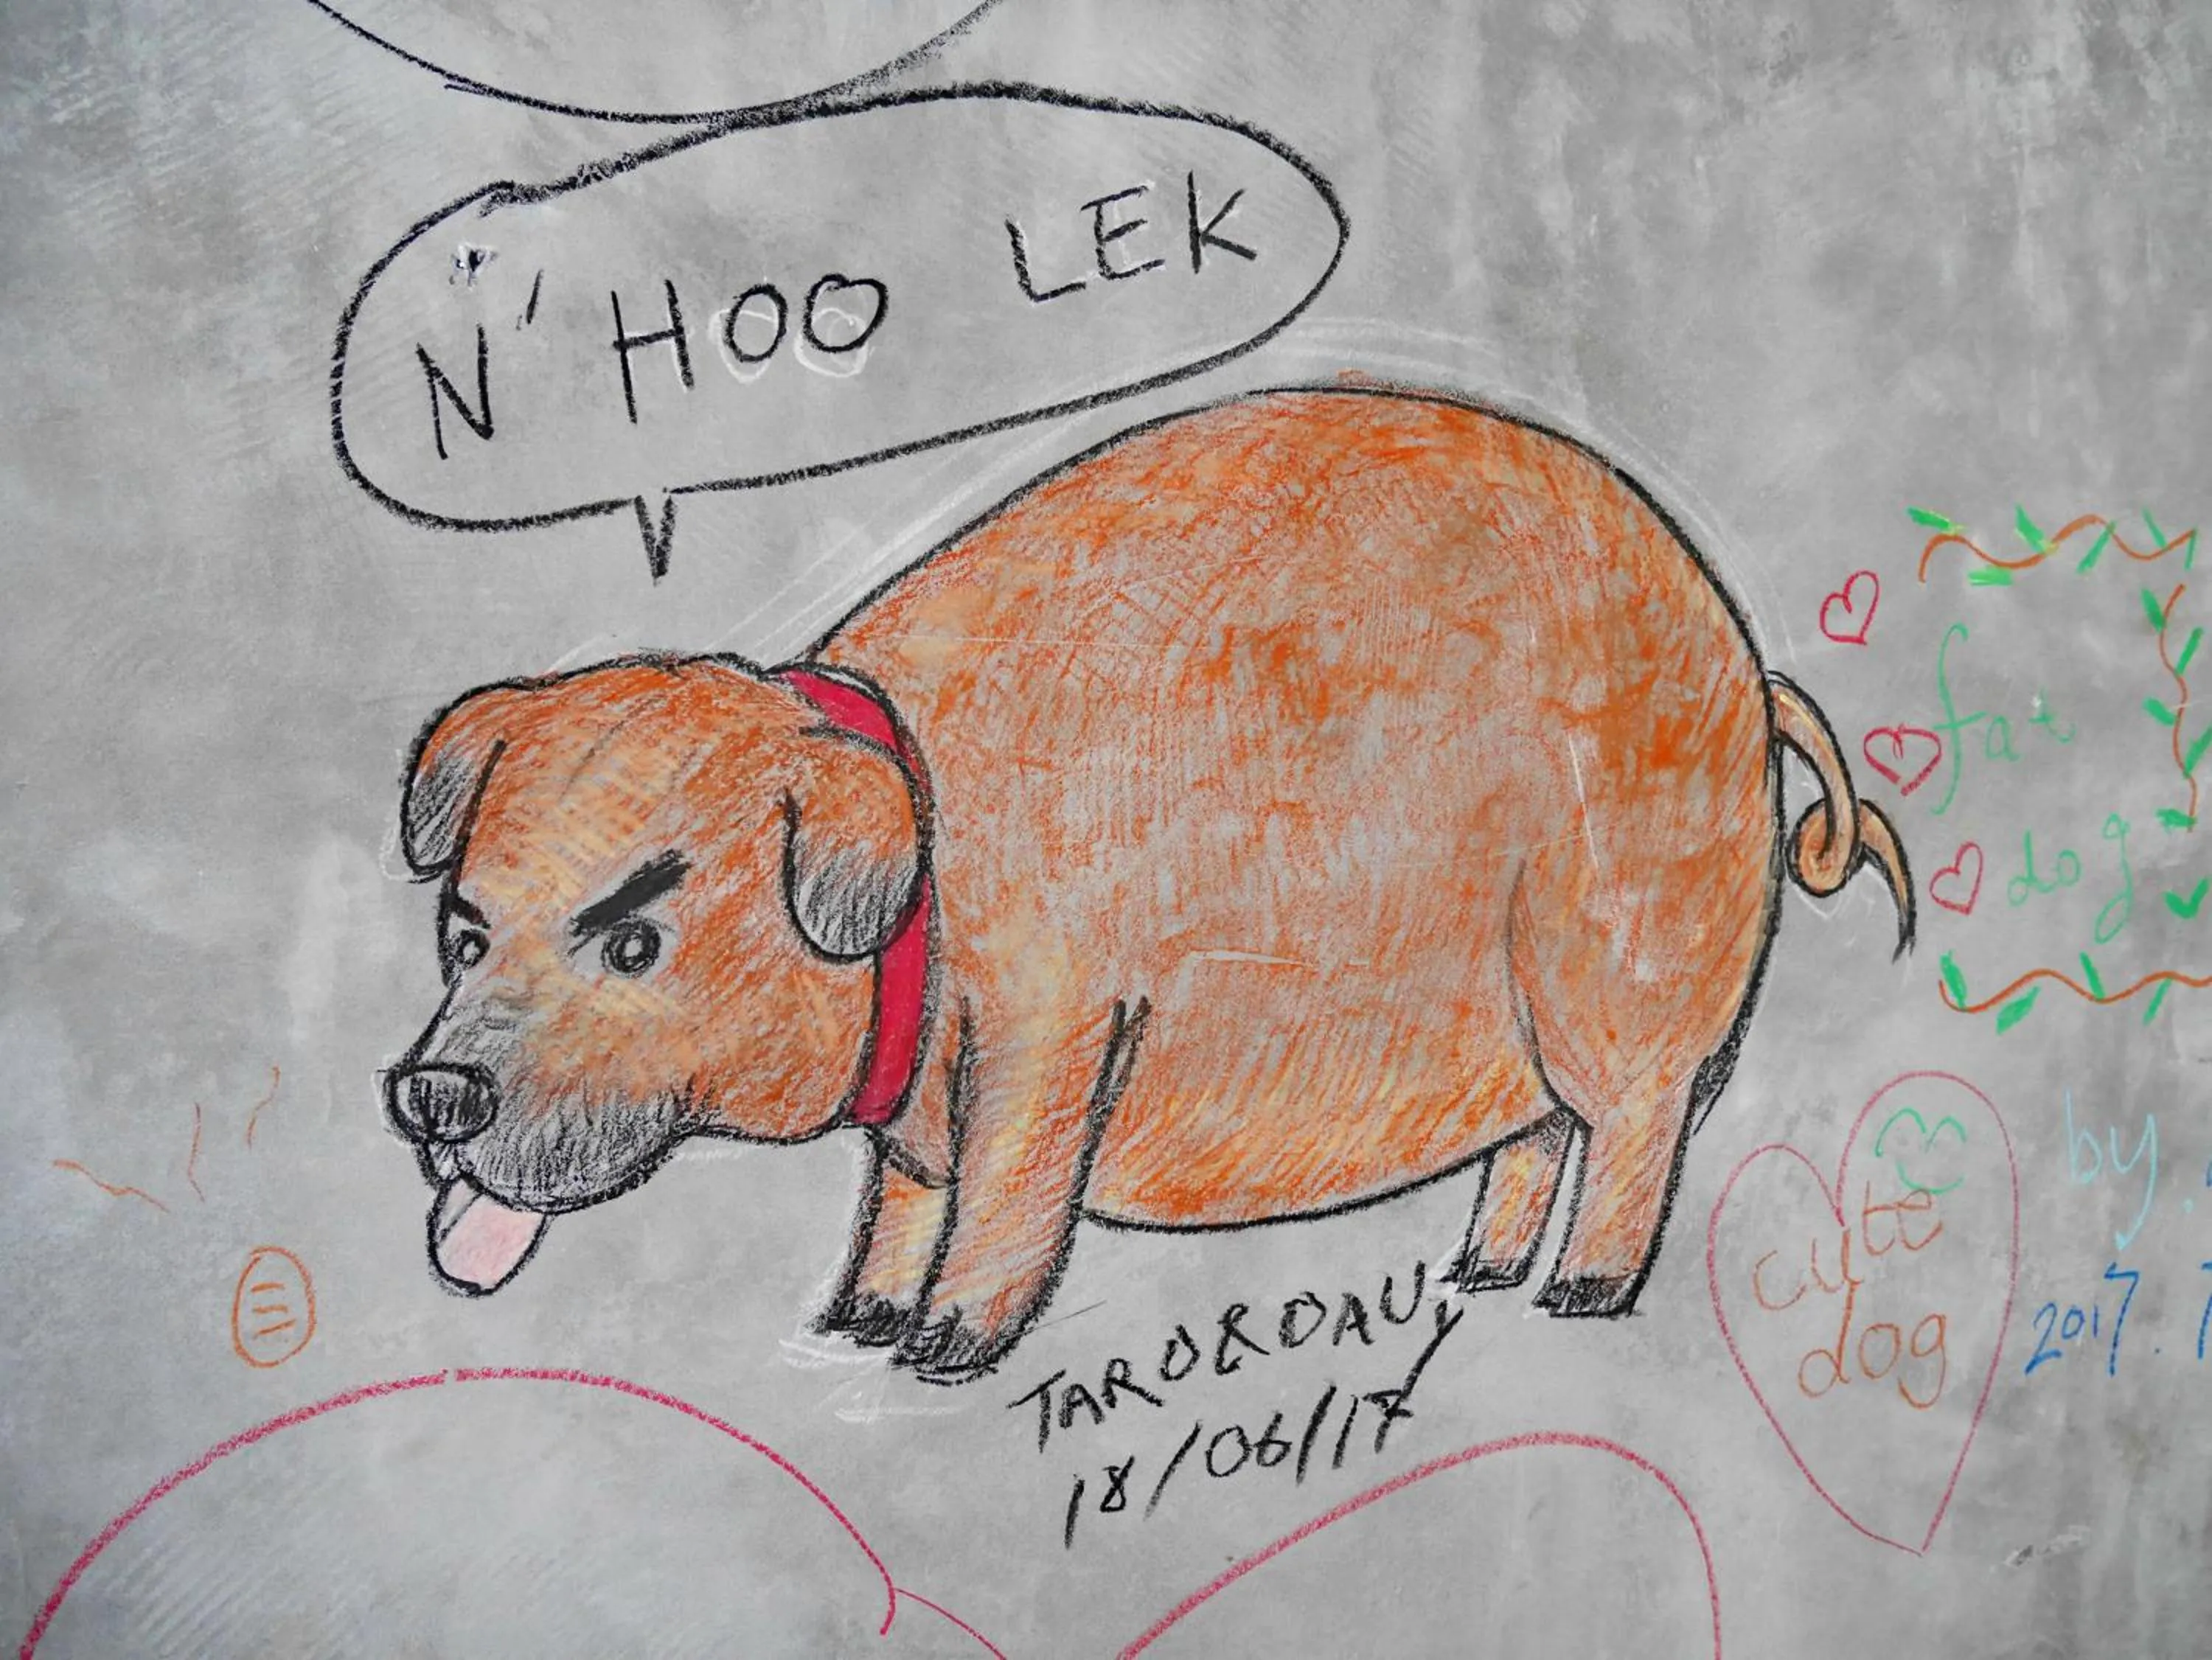 N' HOO LEK
fat
dog
cute
dog
by
2017.
18/06/17